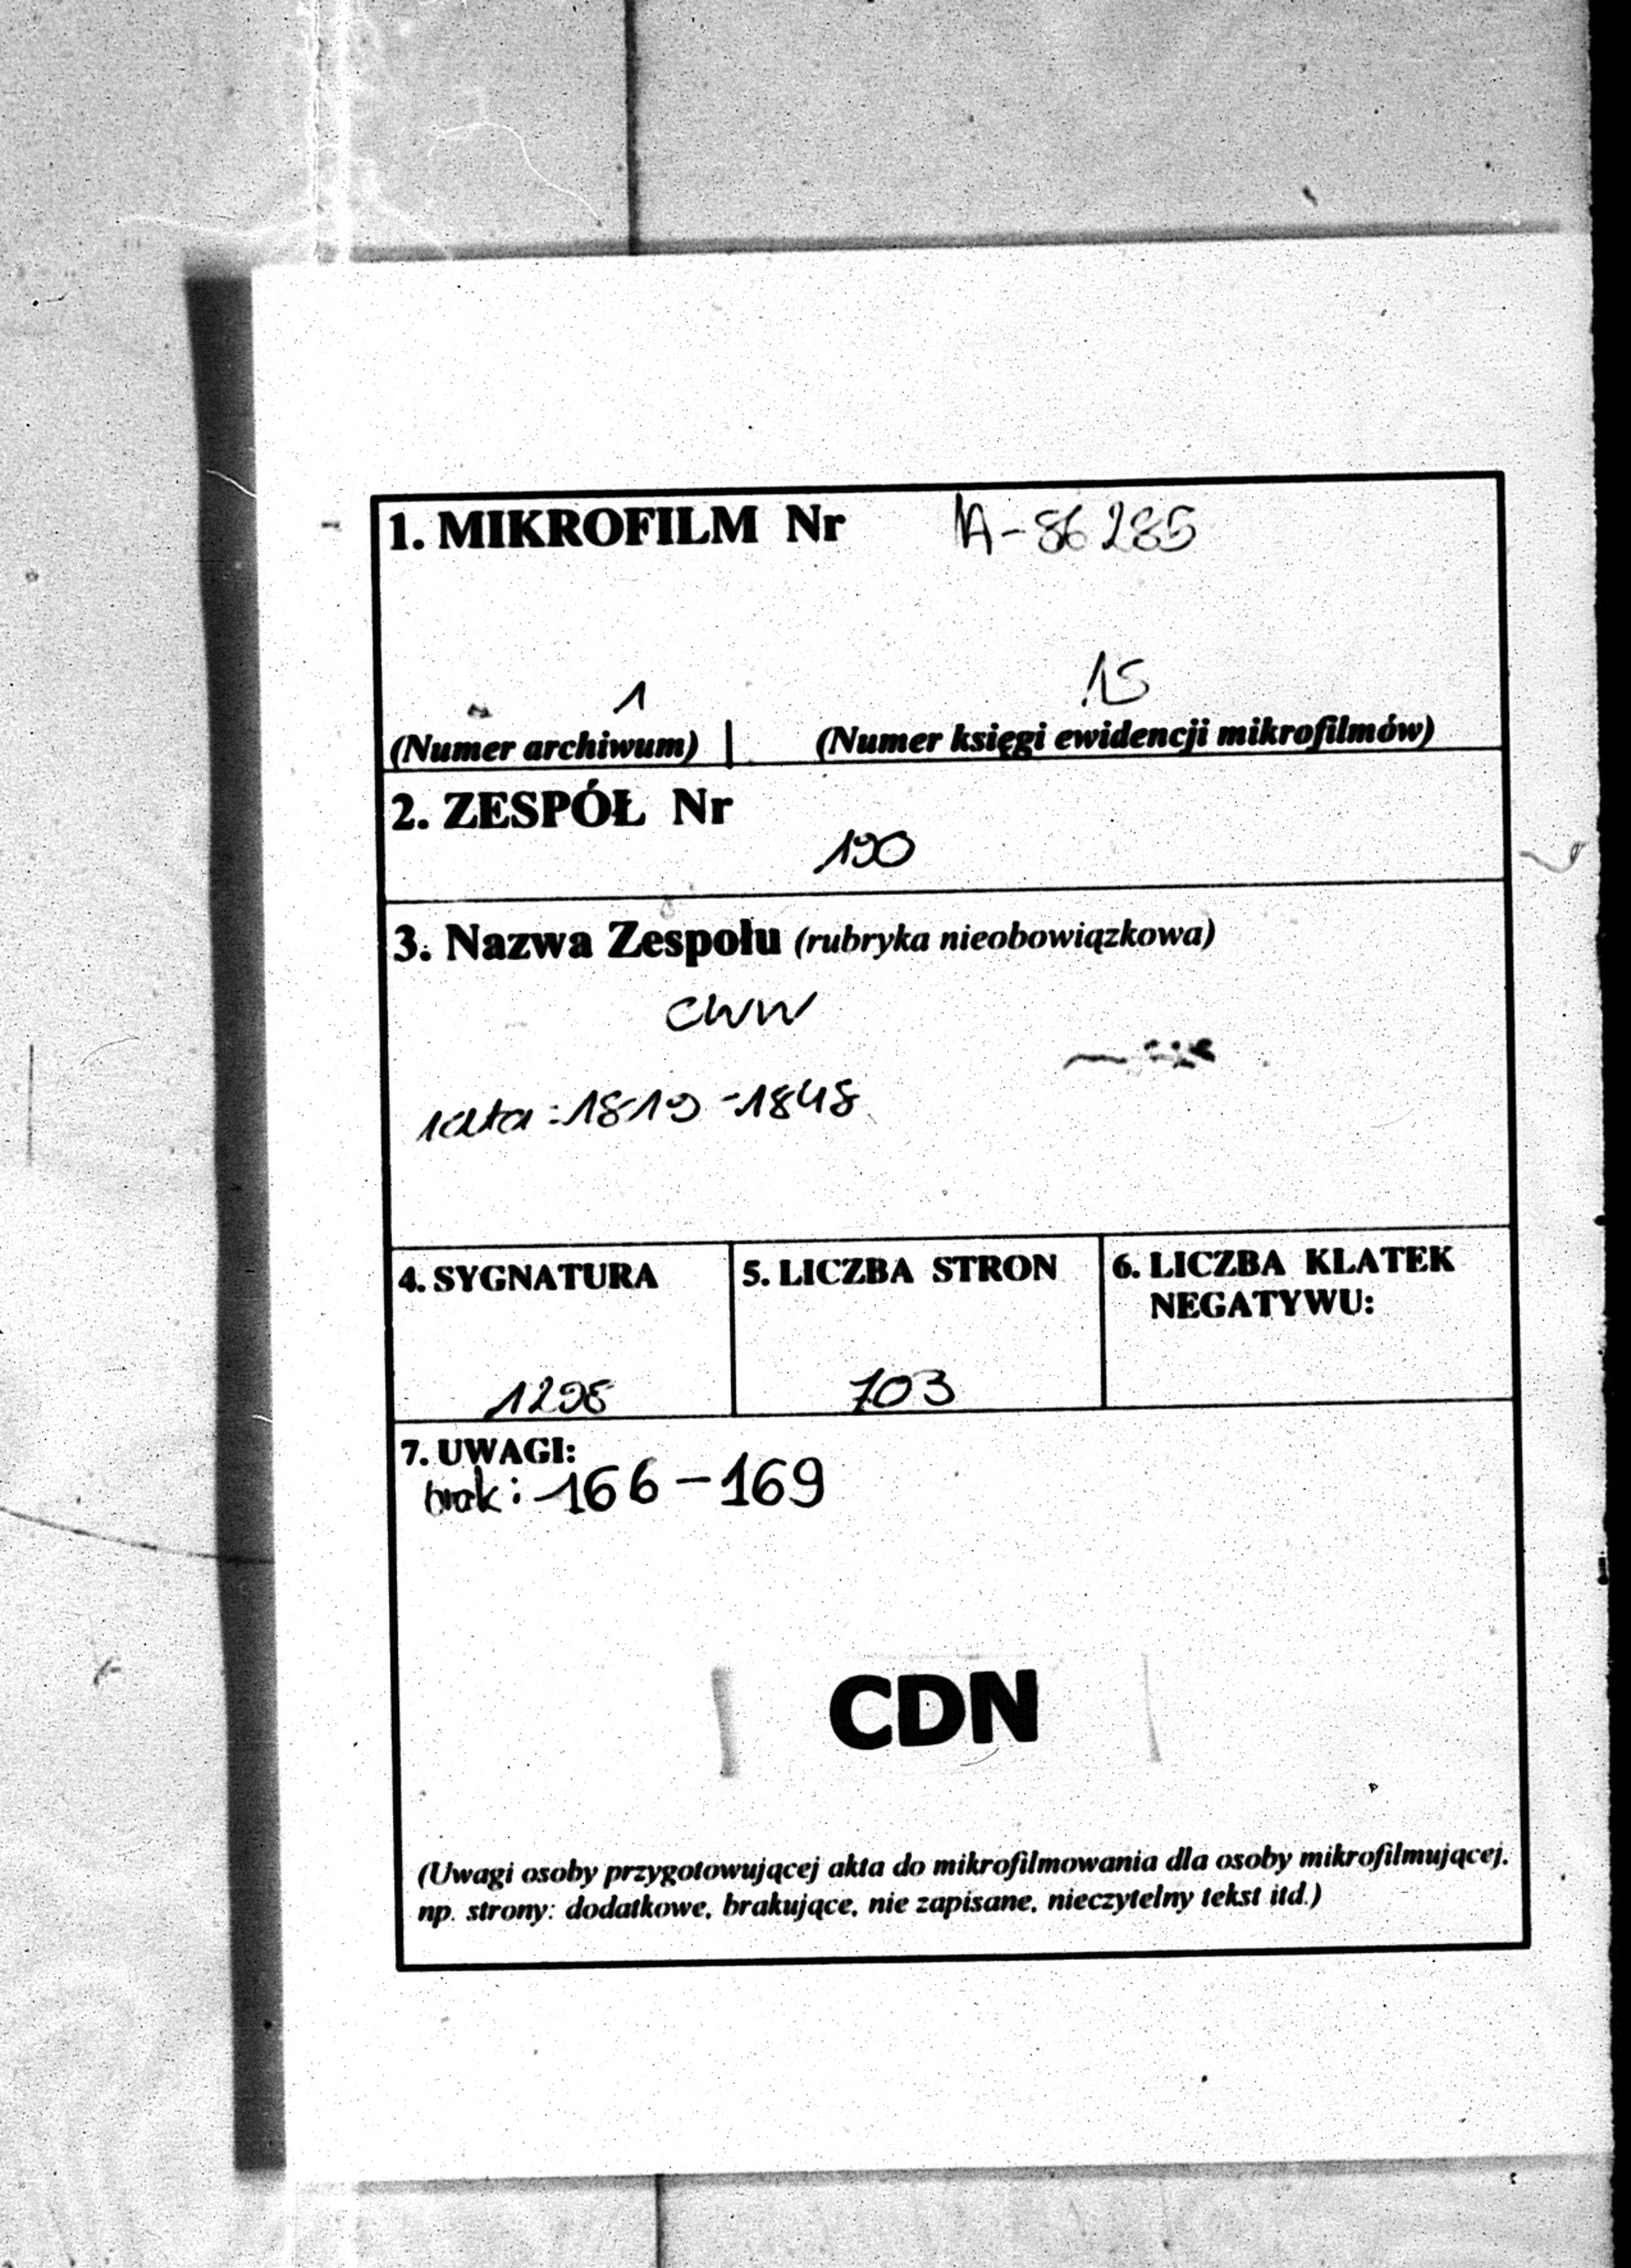 1. MIKROFILM Nr A-86285
1 15
(Numer archiwum) (Numer księgi ewidencji mikrofilmów)
2. ZESPÓŁ Nr
190
3. Nazwa Zespołu (rubryka nieobowiązkowa)
CWW
lata: 1819-1848
4. SYGNATURA 5. LICZBA STRON 6. LICZBA KLATEK
NEGATYWU:
1298 703
7. UWAGI:
brak: 166-169
CDN
(Uwagi osoby przygotowującej akta do mikrofilmowania dla osoby mikrofilmującej.
np. strony: dodatkowe, brakujące, nie zapisane, nieczytelny tekst itd.)